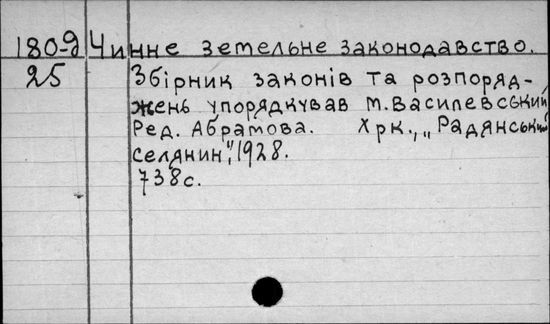 180-д Чинне земельне законодавство.
25 Збірник законів та розпоряд-
жень упорядкував М. Василевський
Ред. Абрамова. Хрк., „Радянський
селянин", 1928.
738с.